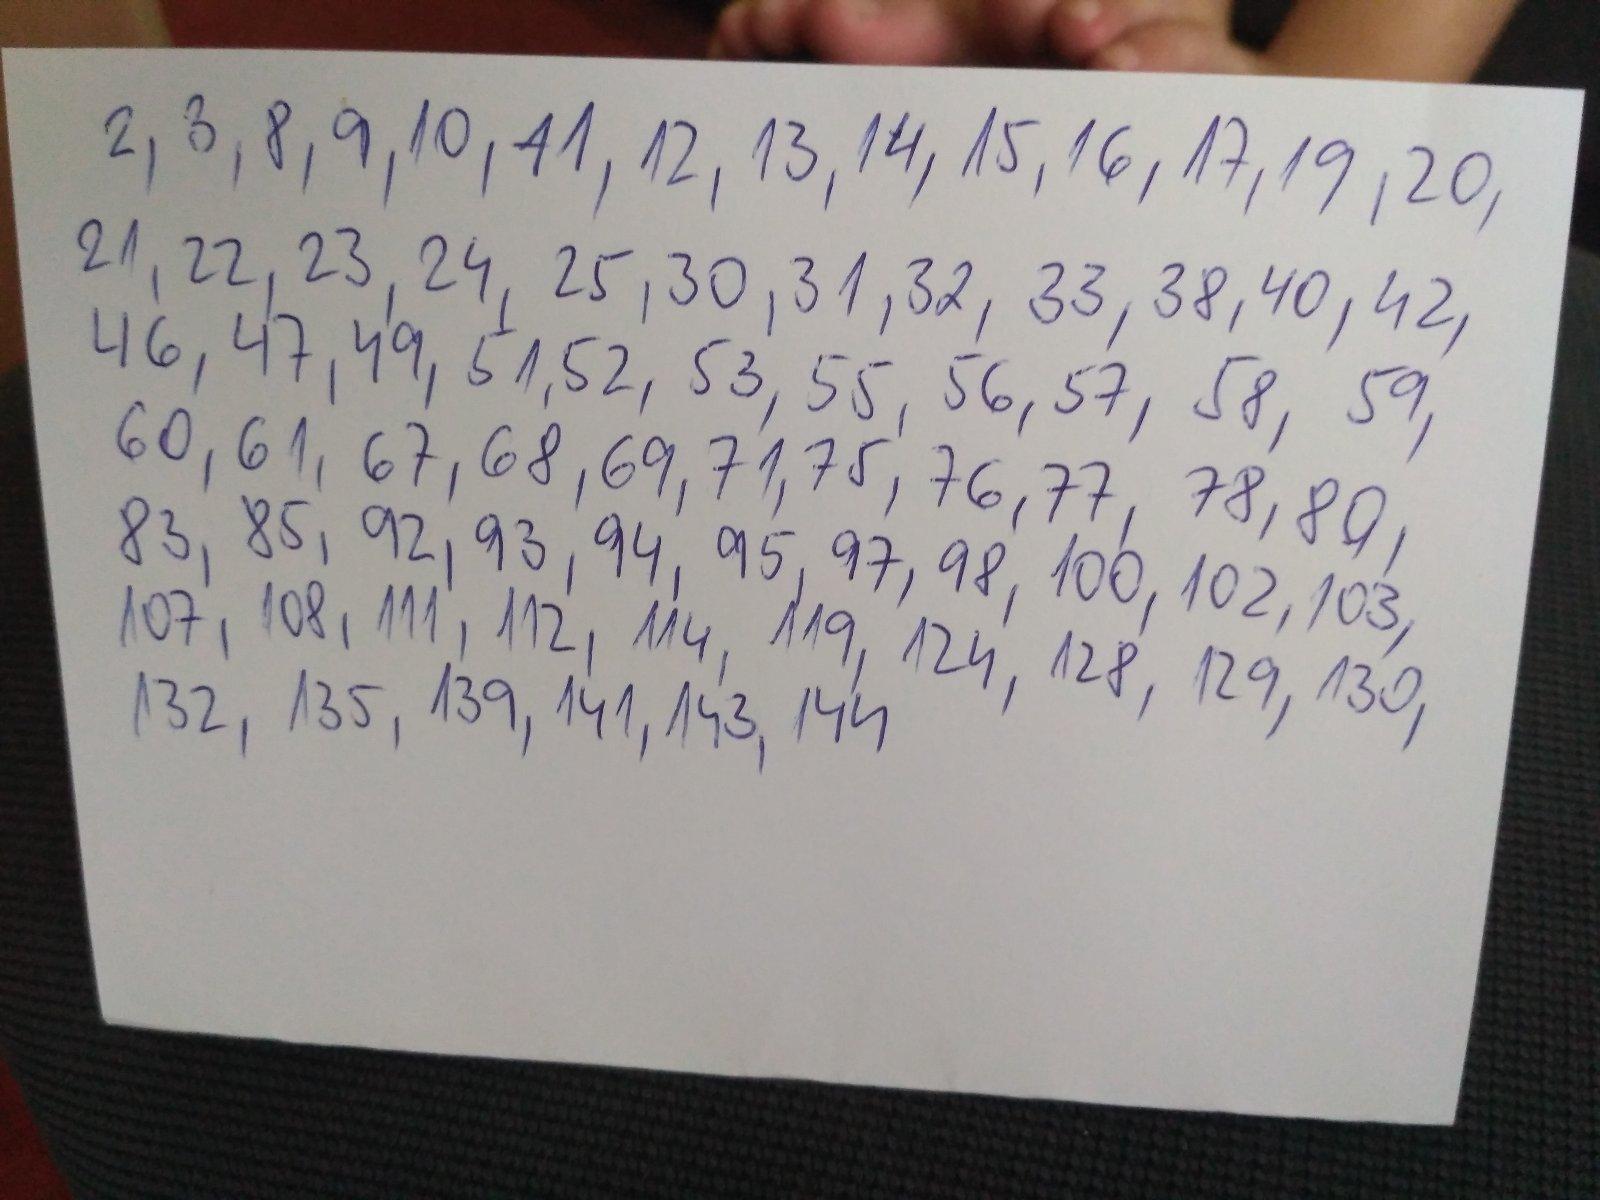 2, 3, 8, 9, 10, 11, 12, 13, 14, 15, 16, 17, 19, 20,
21, 22, 23, 24, 25, 30, 31, 32, 33, 38, 40, 42,
46, 47, 49, 51, 52, 53, 55, 56, 57, 58, 59,
60, 61, 67, 68, 69, 71, 75, 76, 77, 78, 80,
83, 85, 92, 93, 94, 95, 97, 98, 100, 102, 103,
107, 108, 111, 112, 114, 119, 124, 128, 129, 130,
132, 135, 139, 141, 143, 144